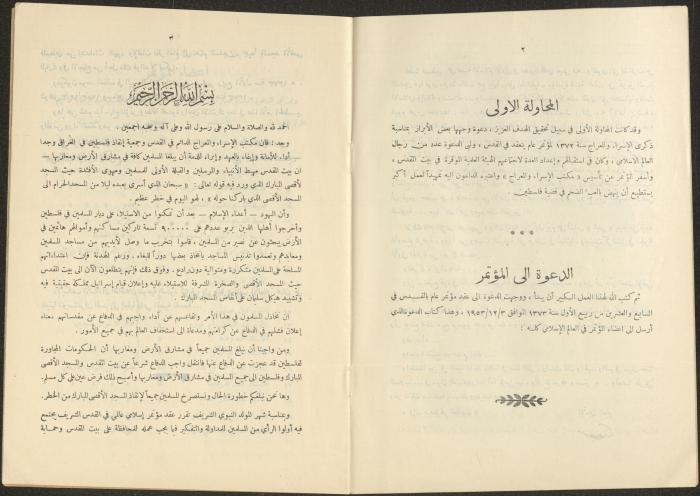 ٢
المحاولة الاولى
وقد كانت المحاولة الأولى في سبيل تحقيق الهدف العزيز، دعوة وجهها بعض الأبرار بمناسبة
ذكرى الإسراء والمعراج سنة ١٣٧٢ لمؤتمر عام ينعقد في القدس، ولبى الدعوة عدد من رجال
العالم الإسلامي، وكان في استقبالهم وإعداد العدة لاجتماعهم الهيئة العلمية الموقرة في بيت المقدس،
وأسفر المؤتمر عن تأسيس « مكتب الإسراء والمعراج » واعتبره الداعون اليه تمهيداً لعمل أكبر
يستطيع أن ينهض بالعبء الضخم في قضية فلسطين.
* * *
الدعوة الى المؤتمر
ثم كتب الله لهذا العمل الكبير أن يبدأ، ووجهت الدعوة الى عقد مؤتمر عام بالقدس في
السابع والعشرين من ربيع الأول سنة ١٣٧٣ الموافق ١٩٥٣/١٢/٣، وهذا كتاب الدعوة الذي
أرسل الى اعضاء المؤتمر في العالم الإسلامي كله :
٣
بسم الله الرحمن الرحيم
الحمد لله والصلاة والسلام على رسول الله وعلى آله وصحبه أجمعين.
وبعد : فان مكتب الإسراء والمعراج الدائم في القدس وجمعية إنقاذ فلسطين في العراق وجدا
أداء للأمانة وإيفاء بالعهد وإبراء للذمة أن يبلغا المسلمين كافة في مشارق الأرض ومغاربها –
ان بيت المقدس مهبط الأنبياء والمرسلين والقبلة الأولى للمسلمين ومهوى الأفئدة حيث المسجد
الأقصى المبارك الذي ورد فيه قوله تعالى : « سبحان الذي أسرى بعبده ليلا من المسجد الحرام الى
المسجد الأقصى الذي باركنا حوله »، لهو اليوم في خطر عظيم.
وأن اليهود – أعداء الإسلام – بعد أن تمكنوا من الاستيلاء على ديار المسلمين في فلسطين
وأخرجوا أهلها الذين يربو عددهم على ٩٠٠٠٠٠ نسمة تاركين مساكنهم وأموالهم هائمين في
الأرض يبحثون عن نصير من المسلمين، قاموا بتخريب ما وصل لأيديهم من مساجد المسلمين
ومعابدهم وتعمدوا تدنيس المساجد باتخاذ بعضها دوراً للبغاء. ورغم الهدنة فإن اعتداءاتهم
المسلحة على المسلمين متكررة ومتوالية دون رادع. وفوق ذلك فإنهم يتطلعون الآن الى بيت المقدس
حيث المسجد الأقصى والصخرة المشرفة للاستيلاء عليه وإعلان قيام إسرائيل مملكة حقيقية فيه
وتشييد هيكل سليمان على أنقاض المسجد المبارك.
ان تخاذل المسلمين في هذا الأمر وتقاعسهم عن أداء واجبهم في الدفاع عن مقدساتهم معناه
إعلان فشلهم في الدفاع عن كرامتهم ومدعاة الى استخفاف العالم بهم في جميع الأمور.
ومن واجبنا أن نبلغ المسلمين جميعاً في مشارق الأرض ومغاربها أن الحكومات المجاورة
لفلسطين قد عجزت عن الدفاع عنها فانتقل واجب الدفاع شرعاً عن بيت المقدس والمسجد الأقصى
المبارك وفلسطين الى جميع المسلمين في مشارق الأرض ومغاربها وأصبح ذلك فرض عين على كل مسلم.
وها نحن نبلغكم خطورة الحال ونستصرخ المسلمين جميعاً لإنقاذ المسجد الأقصى المبارك من الخطر.
وبمناسبة شهر المولد النبوي الشريف تقرر عقد مؤتمر إسلامي عالمي في القدس الشريف يجتمع
فيه أولوا الرأي من المسلمين للمداولة والتفكير فيما يجب عمله للمحافظة على بيت المقدس وحماية